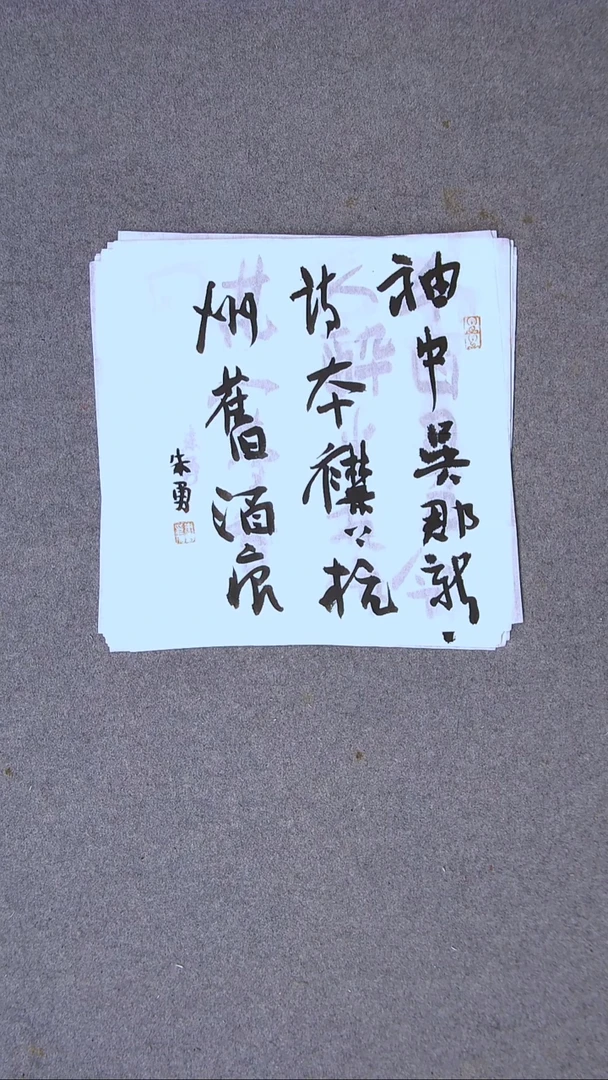 袖中吳郡新
詩本襟上杭
州舊酒痕
朱勇